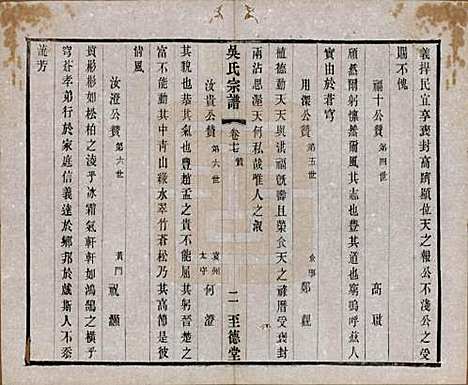 義捍民宜享褒封高躋顯位天之報公不淺公之受
賜不愧
福十公贊 第四世 高啟
頎然爾躬愾然爾風其志也豊其道也隆嗚呼茲人
實由於蒼穹
用深公贊 第五世 僉事 鄭
植德動天天與洪福既壽且榮食天之祿厝受褒封
兩沾恩渥天何私哉惟人之淑
吳氏宗譜 卷七 贊 二 至德堂
汝貴公贊 第六世 袁州太守 何澄
其貌也恭其氣也豐趙孟之貴不能屈其躬晉楚之
富不能動其中青山綠水翠竹蒼松乃其真情乃其
清風
汝澄公贊 第六世 黃門 祝顥
貌形形如松柏之凌乎冰霜氣軒軒如鴻鵠之橫乎
穹蒼孝弟行於家庭信義達於鄉邦於戲斯人不忝
流芳